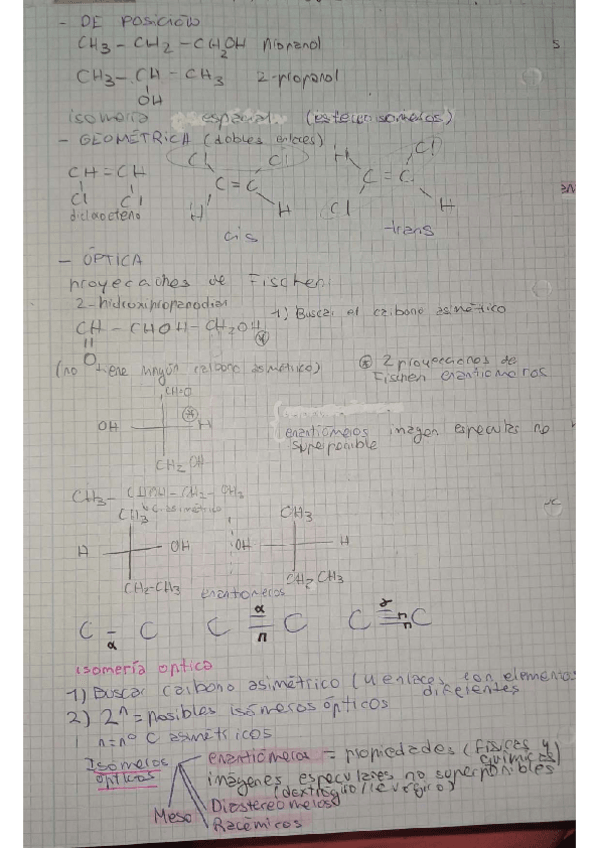 - DE POSICIÓN
CH3 - CH2 - CH2OH propanol
5
CH3 - CH - CH3 2-propanol
OH
isomería espacial (estereoisomeros)
- GEOMÉTRICA (dobles enlaces)
CH = CH
Cl Cl
dicloroeteno
Cl Cl
C = C
H H
cis
H Cl
C = C
Cl H
trans
- ÓPTICA
proyecciones de Fischer:
2-hidroxipropanodial
1) Buscar el carbono asimétrico
CH - CHOH - CH2OH
O
(no tiene ningún carbono asimétrico)
2 proyecciones de
Fischer enantiomeros
CH=O
OH H
CH2OH
enantiómeros imagen especular no
superponible
CH3 - CHOH - CH2 - CH3
C. asimétrico
CH3 CH3
H OH OH H
CH2-CH3 CH2CH3
enantiomeros
C - C C = C C ≡ C
α α π π π
isomería optica
1) Buscar carbono asimétrico (4 enlaces con elementos
diferentes
2) 2ⁿ = posibles isómeros ópticos
n = nº C asimétricos
Isómeros
ópticos
enantiómeros = propiedades (físicas y
químicas)
imágenes especulares no superponibles
(dextrógiro / levógiro)
Diastereomeros
Meso
Racémicos